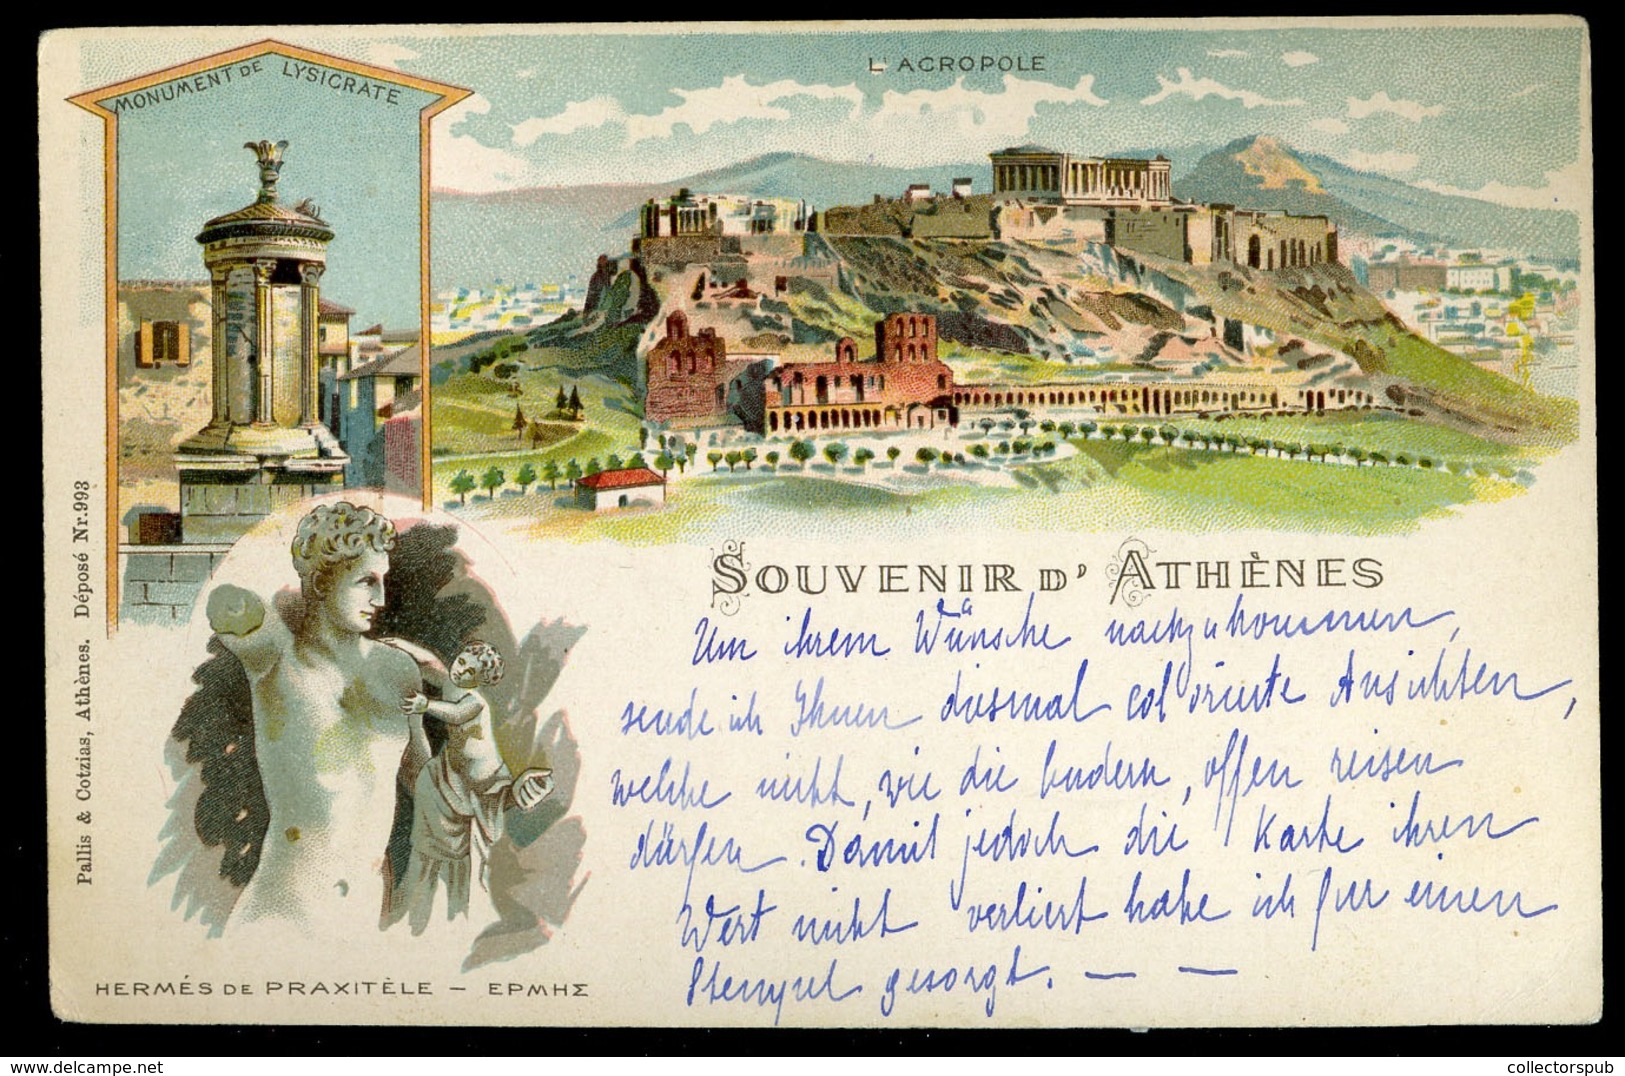 MONUMENT DE LYSICRATE
L'ACROPOLE
SOUVENIR D'ATHÈNES
Um ihrem Wünsche nachzukommen,
sende ich Ihnen diesmal colorierte Ansichten,
welche nicht, wie die andern, offen reisen
dürfen. Damit jedoch die Karte ihren
Wert nicht verliert habe ich für einen
Stempel gesorgt. — —
Pallis & Cotzias, Athènes. Déposé Nr. 993
HERMÉS DE PRAXITÈLE – ΕΡΜΗΣ
collectorspub